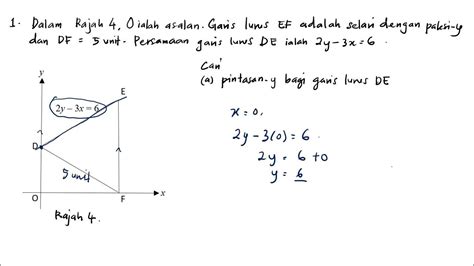 1. Dalam Rajah 4, O ialah asalan. Garis lurus EF adalah selari dengan paksi-y
dan DF = 5 unit. Persamaan garis lurus DE ialah 2y-3x=6.
Cari
(a) pintasan-y bagi garis lurus DE
y
E
2y − 3x = 6
D
5 unit
O
F
x
Rajah 4.
x = 0,
2y - 3(0) = 6
2y = 6 + 0
y = 6